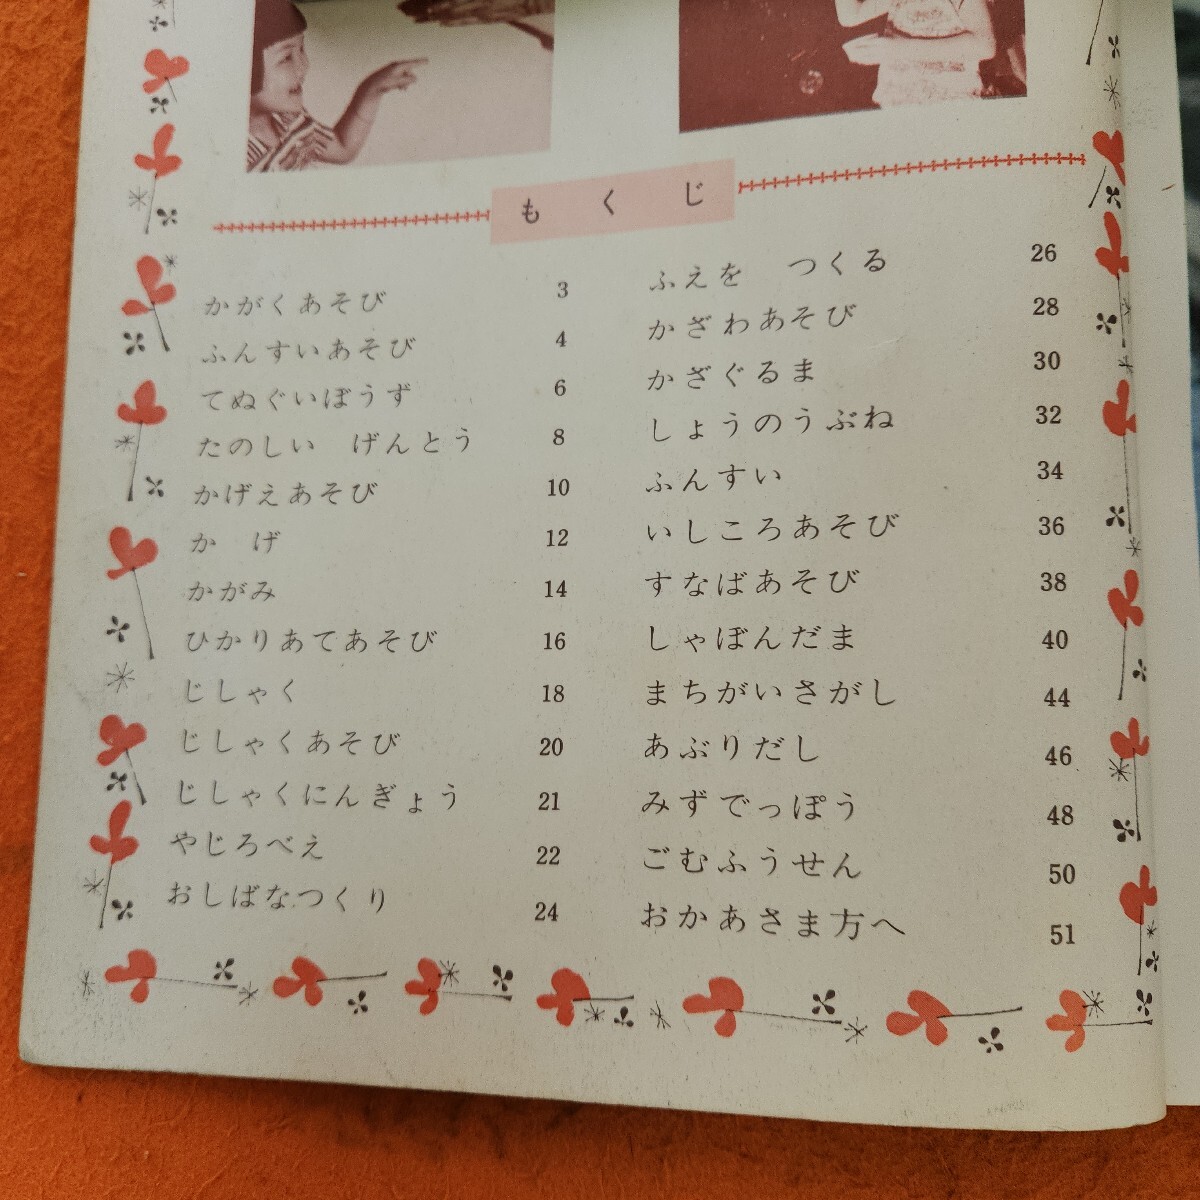 もくじ
かがくあそび 3
ふんすいあそび 4
てぬぐいぼうず 6
たのしい げんとう 8
かげえあそび 10
か げ 12
かがみ 14
ひかりあてあそび 16
じしゃく 18
じしゃくあそび 20
じしゃくにんぎょう 21
やじろべえ 22
おしばなつくり 24
ふえを つくる 26
かざわあそび 28
かざぐるま 30
しょうのうぶね 32
ふんすい 34
いしころあそび 36
すなばあそび 38
しゃぼんだま 40
まちがいさがし 44
あぶりだし 46
みずでっぽう 48
ごむふうせん 50
おかあさま方へ 51